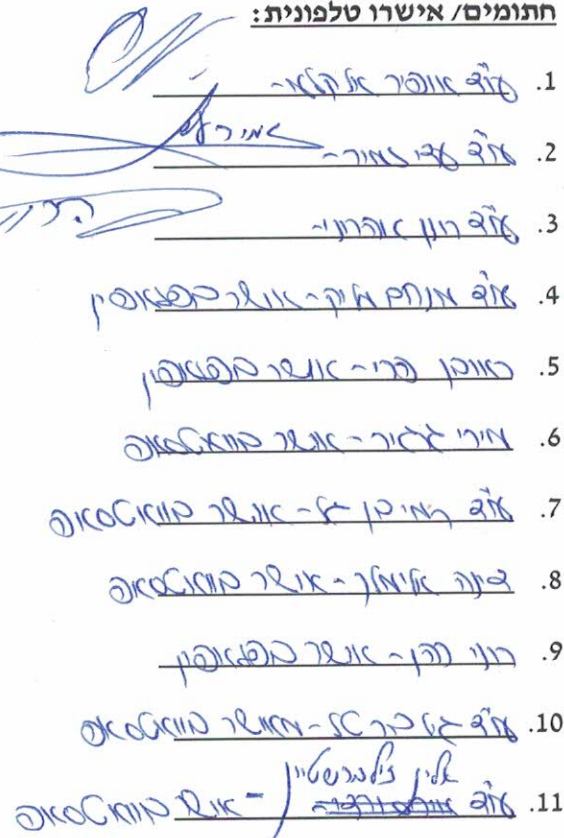 חתומים/ אישרו טלפונית:
1. עו"ד אופיר אלקלעי-
2. עו"ד עדי זמיר-
3. עו"ד רונן אהרוני-
4. עו"ד מנחם מליק- אושר בפגאופין
5. ראובן הררי- אושר בפגאופין
6. מירי גרגיר- אושר בוואטסאפ
7. עו"ד רמי בן גל- אושר בוואטסאפ
8. דינה אלימלך- אושר בוואטסאפ
9. רוני כהן- אושר בפגאופין
10. עו"ד טל- מאושר בוואטסאפ
אלין זילברשטיין
11. עו"ד - אושר בוואטסאפ